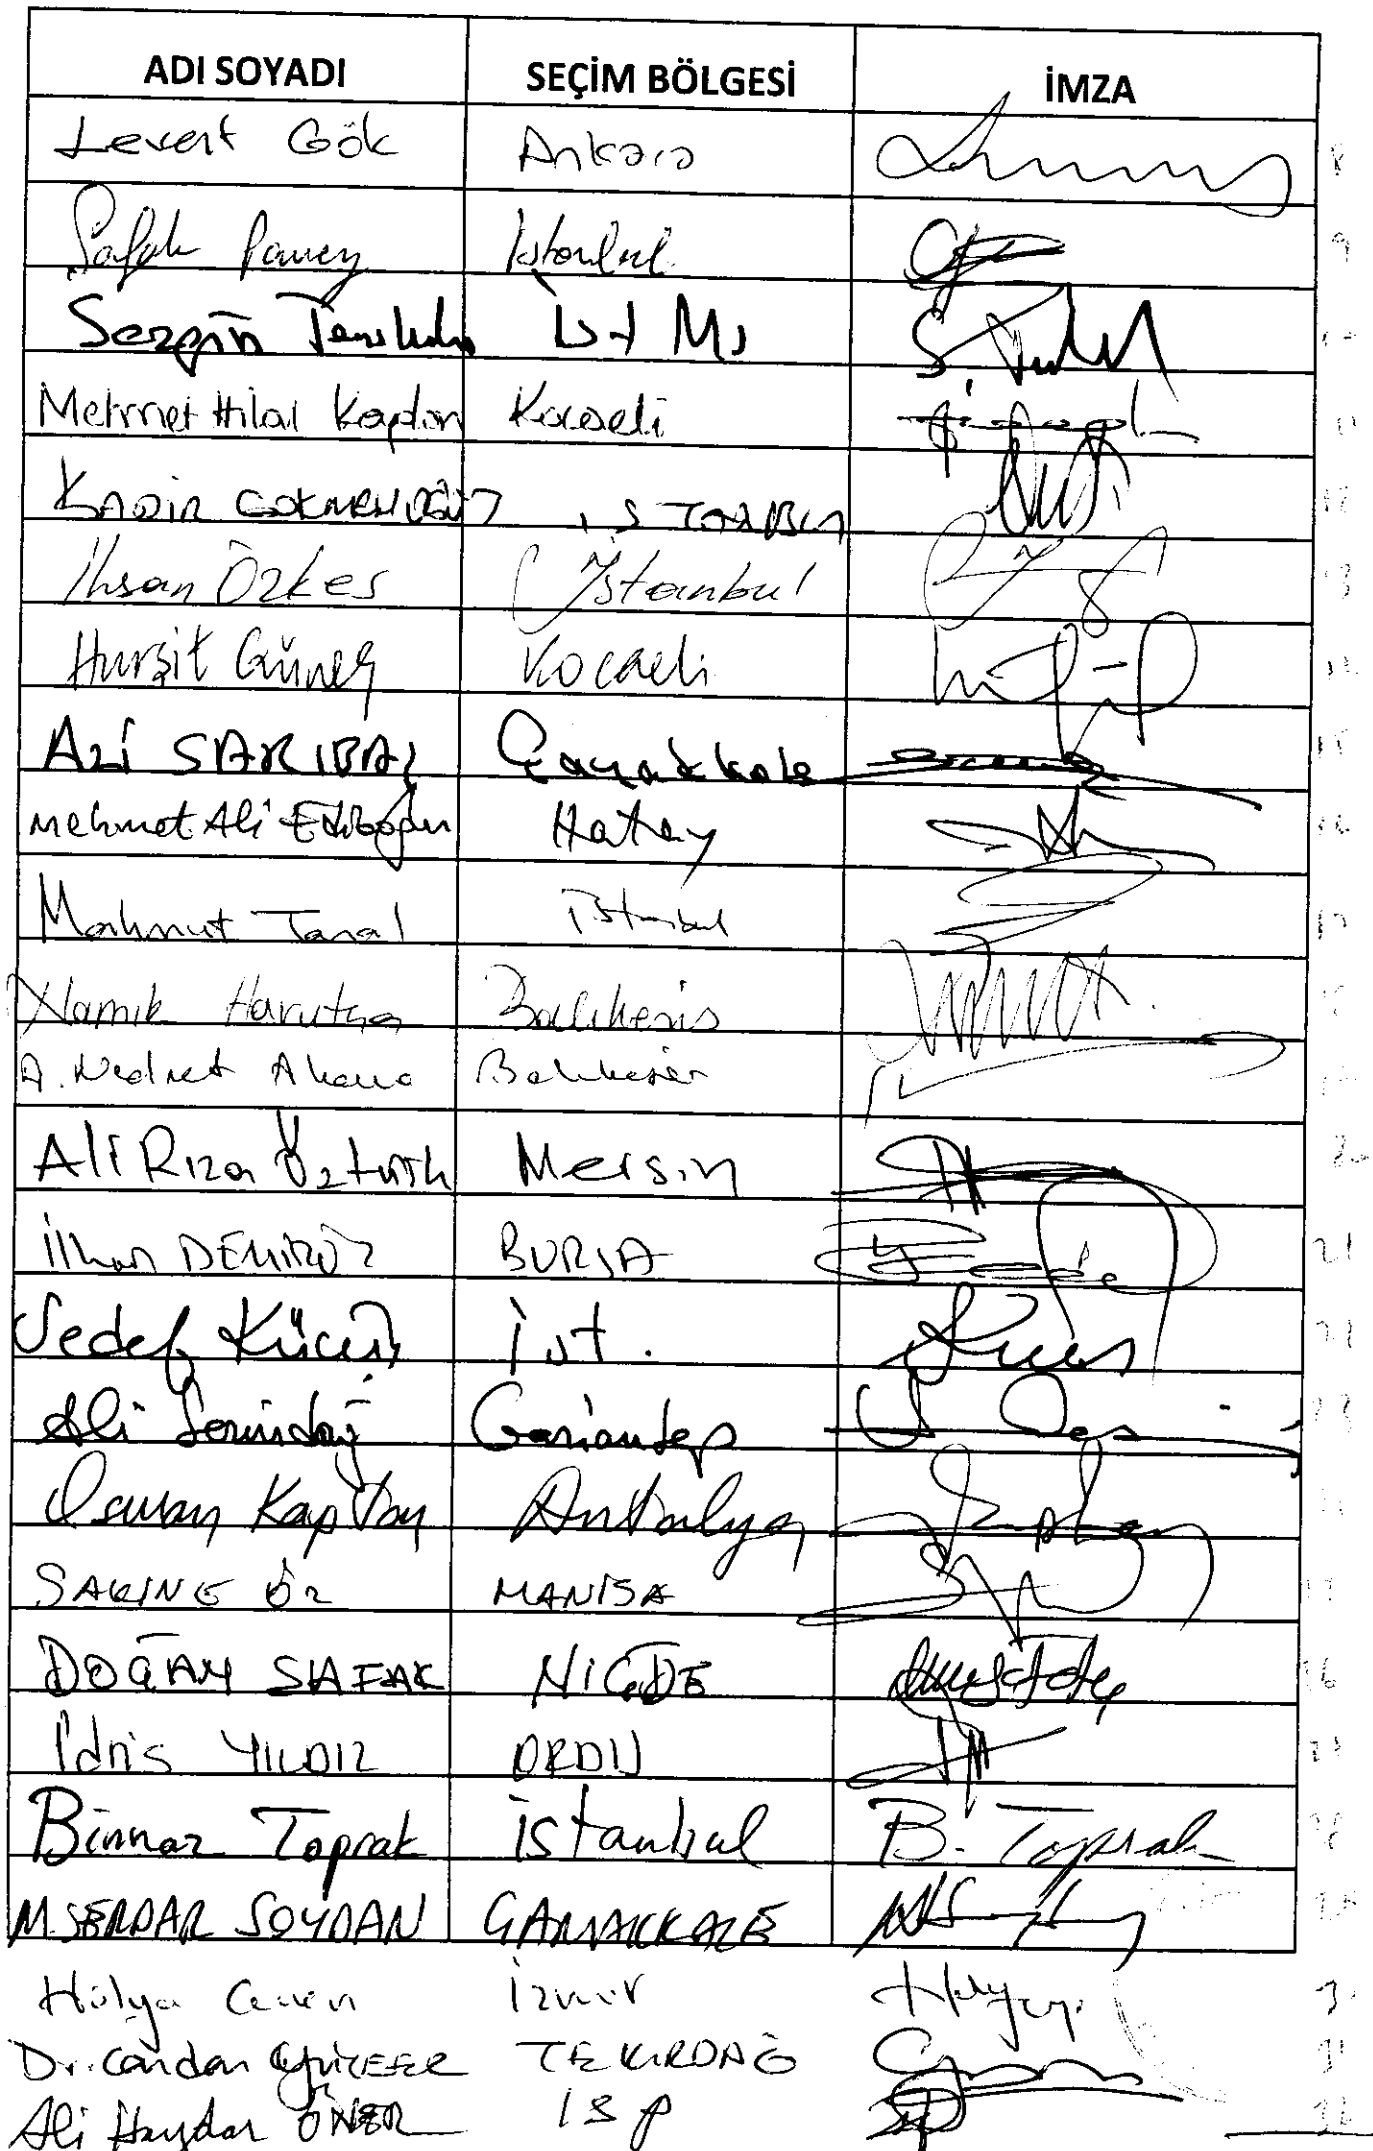 ADI SOYADI SEÇİM BÖLGESİ İMZA
Levent Gök Ankara
Şafak Pavey İstanbul
Sezgin Tanrıkulu İst
Mehmet Hilal Kaplan Kocaeli
KADİR GÖKMEN ÖĞÜT İSTANBUL
İhsan Özkes İstanbul
Hurşit Güneş Kocaeli
Ali SARIBAŞ Çanakkale
Mehmet Ali Ediboğlu Hatay
Mahmut Tanal İstanbul
Namık Havutça Balıkesir
A. Nedret Akova Balıkesir
Ali Rıza Öztürk Mersin
İlhan DEMİRÖZ BURSA
Sedef Küçük İst.
Ali Serindağ Gaziantep
Osman Kaptan Antalya
SAKİNE ÖZ MANİSA
DOĞAN ŞAFAK NİĞDE
İdris YILDIZ ORDU
Binnaz Toprak İstanbul B. Toprak
M.SERDAR SOYDAN ÇANAKKALE
Hülya Güven İzmir
Dr. Candan YÜCEER TEKİRDAĞ
Ali Haydar ÖNER